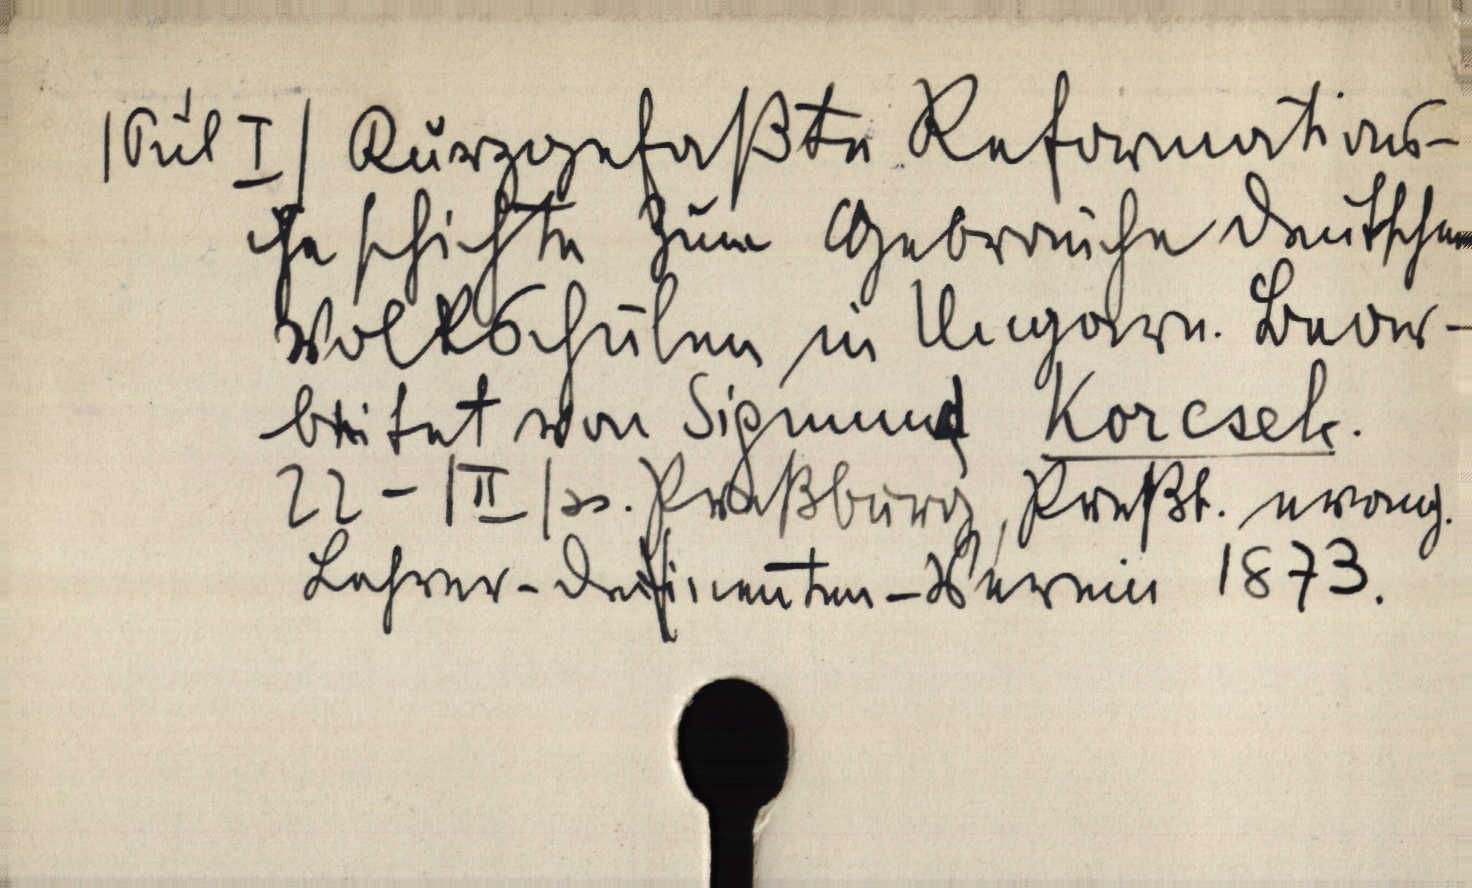 |Kül I| Kurzgefaßte Reformations-
geschichte zum Gebrauche deutscher
Volksschulen in Ungarn. Bear-
beitet von Sigmund Korcsek.
22 - |II| ss. Preßburg, Preßb. evang.
Lehrer-Defizienten-Verein 1873.